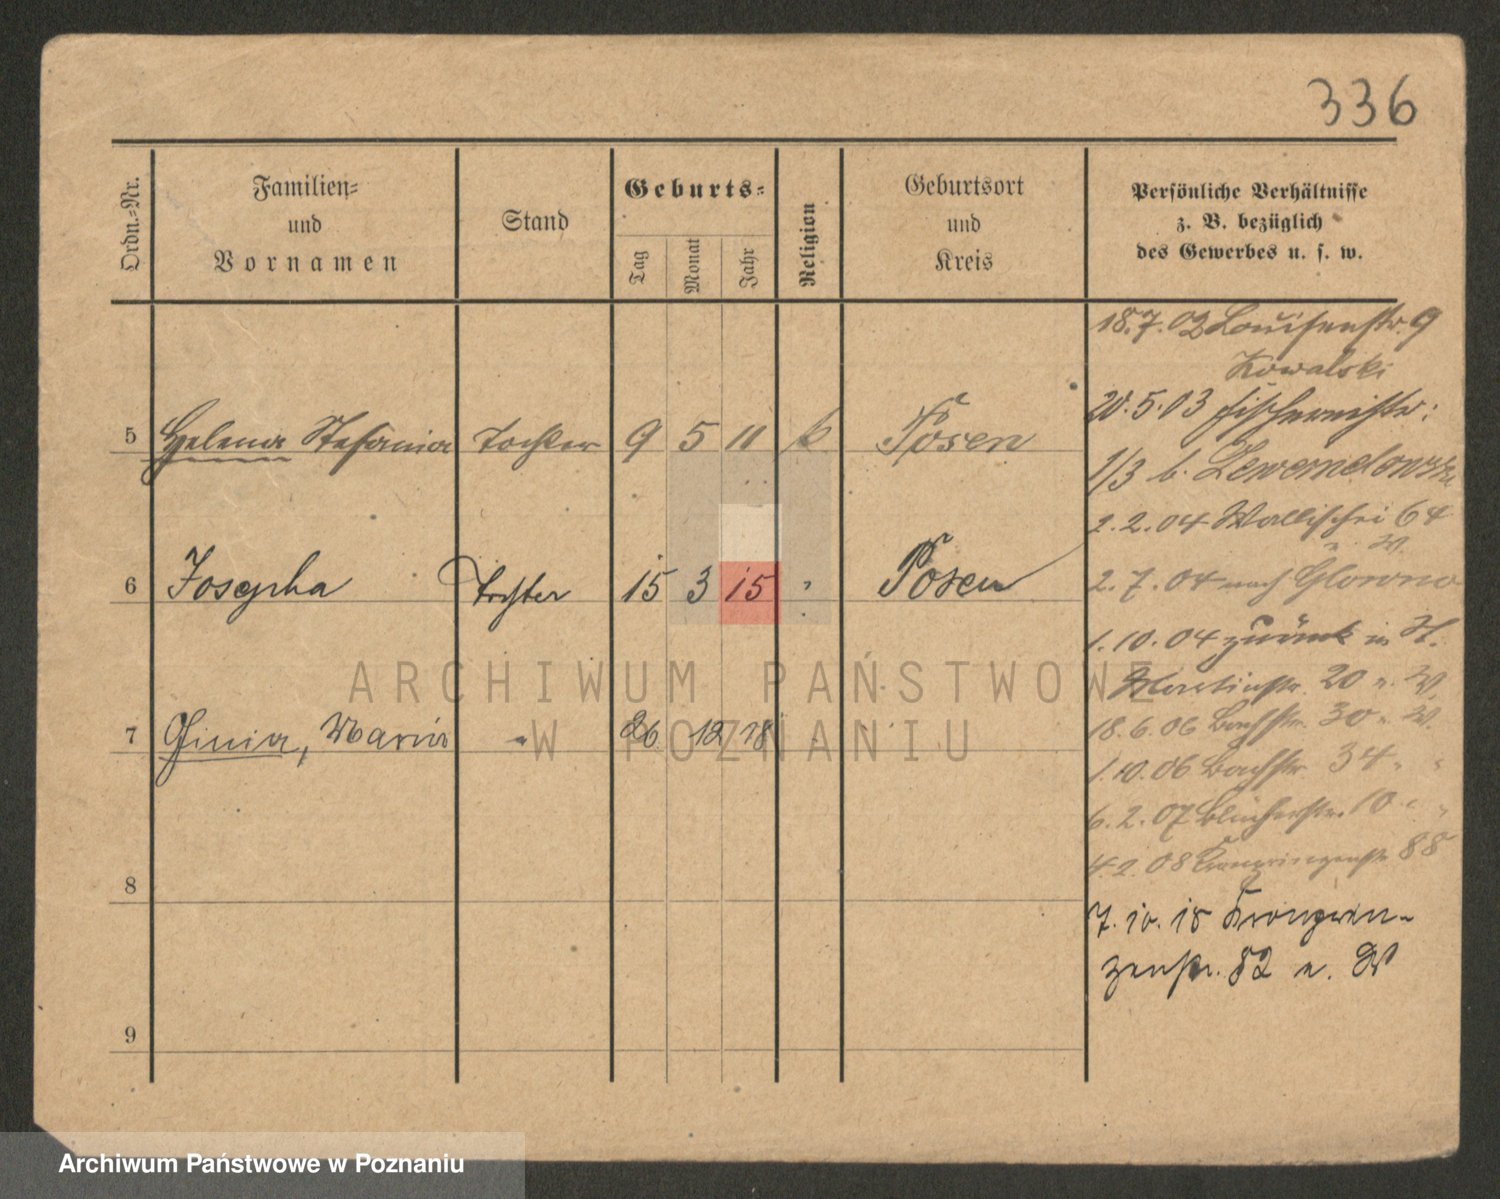 336
Ordn.-Nr.
Familien-
und
Vornamen
Stand
Geburts-
Tag
Monat
Jahr
Religion
Geburtsort
und
Kreis
Persönliche Verhältnisse
z. B. bezüglich
des Gewerbes u. s. w.
18.7.02 Louisenstr. 9
Kowalski
20.5.03 Fischereistr:
5 Helena Stefania Tochter 9 5 11 k Posen
1/3 b. Lewandowski
2.2.04 Wallischei 64
" W.
6 Josepha Tochter 15 3 15 " Posen
2.7.04 nach Glowno
1.10.04 zurück in St.
ARCHIWUM PAŃSTWOWE
W POZNANIU
Martinstr. 20 u. W.
18.6.06 Bachstr. 30 u. W.
7 Maria " 26 12 18
1.10.06 Bachstr 34 " "
6.2.07 Blücherstr. 10 " "
8
4.2.08 Kronprinzenstr 88
7.10.18 Kronprin-
zenstr. 82 u. W
9
Archiwum Państwowe w Poznaniu